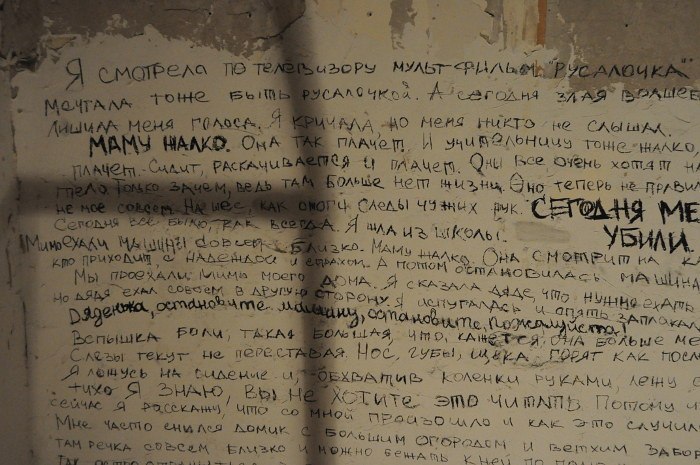 Я СМОТРЕЛА ПО ТЕЛЕВИЗОРУ МУЛЬТ-ФИЛЬМ "РУСАЛОЧКА"
МЕЧТАЛА ТОЖЕ БЫТЬ РУСАЛОЧКОЙ. А СЕГОДНЯ ЗЛАЯ ВОЛШЕБ
ЛИШИЛА МЕНЯ ГОЛОСА. Я КРИЧАЛА, НО МЕНЯ НИКТО НЕ СЛЫШАЛ.
МАМУ ЖАЛКО. ОНА ТАК ПЛАЧЕТ. И УЧИТЕЛЬНИЦУ ТОЖЕ ЖАЛКО,
ПЛАЧЕТ. СИДИТ, РАСКАЧИВАЕТСЯ И ПЛАЧЕТ. ОНИ ВСЕ ОЧЕНЬ ХОТЯТ НА
ТЕЛО. ТОЛЬКО ЗАЧЕМ, ВЕДЬ ТАМ БОЛЬШЕ НЕТ ЖИЗНИ. ОНО ТЕПЕРЬ НЕ ПРАВИ
НЕ МОЕ СОВСЕМ. НА ШЕЕ, КАК ОЖОГИ СЛЕДЫ ЧУЖИХ РУК. СЕГОДНЯ МЕ
СЕГОДНЯ ВСЕ БЫЛО, КАК ВСЕГДА. Я ШЛА ИЗ ШКОЛЫ. УБИЛИ.
МИМО ЕХАЛИ МАШИНЫ СОВСЕМ БЛИЗКО. МАМУ ЖАЛКО. ОНА СМОТРИТ НА КА
КТО ПРИХОДИТ С НАДЕЖДОЙ И СТРАХОМ. А ПОТОМ ОСТАНОВИЛАСЬ МАШИНА
МЫ ПРОЕХАЛИ МИМО МОЕГО ДОМА. Я СКАЗАЛА ДЯДЕ, ЧТО НУЖНО ЕХАТЬ
НО ДЯДЯ ЕХАЛ СОВСЕМ В ДРУГУЮ СТОРОНУ. Я ИСПУГАЛАСЬ И ОПЯТЬ ЗАПЛАКАЛ
Дяденька, остановите машину, остановите, пожалуйста!
ВСПЫШКА БОЛИ, ТАКАЯ БОЛЬШАЯ, ЧТО, КАЖЕТСЯ, ОНА БОЛЬШЕ МЕ
СЛЕЗЫ ТЕКУТ НЕ ПЕРЕСТАВАЯ. НОС, ГУБЫ, ЩЕКА ГОРЯТ КАК ПОСЛ
Я ЛОЖУСЬ НА СИДЕНИЕ И, ОБХВАТИВ КОЛЕНКИ РУКАМИ, ЛЕЖУ
ТИХО Я ЗНАЮ, ВЫ НЕ ХОТИТЕ ЭТО ЧИТАТЬ. ПОТОМУ И
СЕЙЧАС Я РАССКАЖУ, ЧТО СО МНОЙ ПРОИЗОШЛО И КАК ЭТО СЛУЧИЛ
МНЕ ЧАСТО СНИЛСЯ ДОМИК С БОЛЬШИМ ОГОРОДОМ И ВЕТХИМ ЗАБО
ТАМ РЕЧКА СОВСЕМ БЛИЗКО И МОЖНО БЕЖАТЬ К НЕЙ ПО